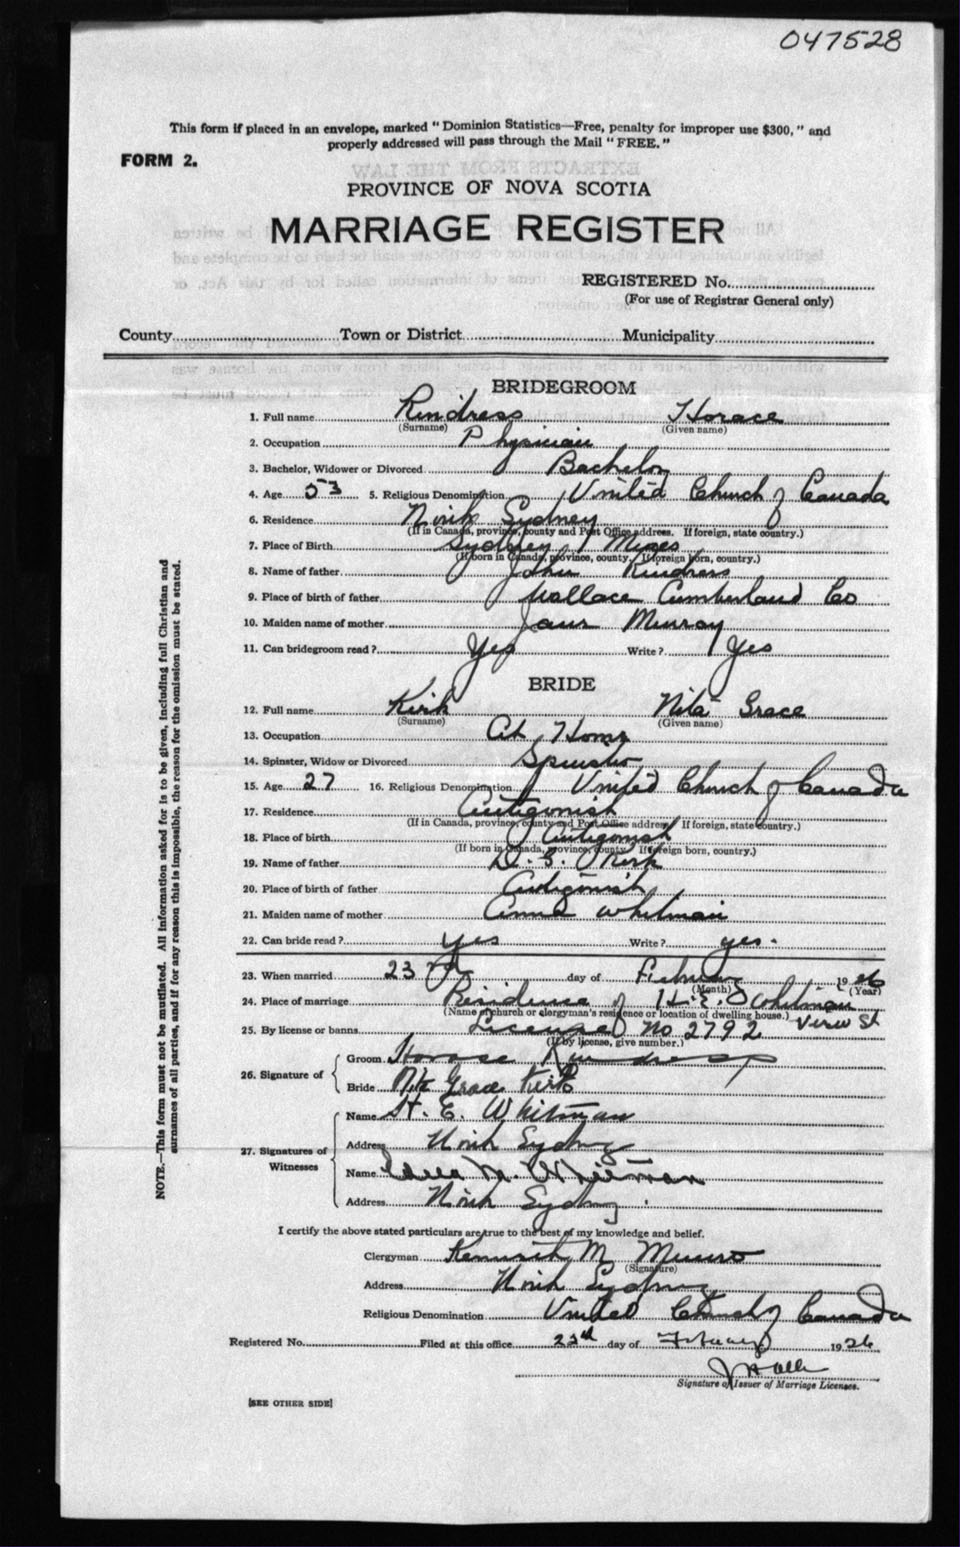 047528
This form if placed in an envelope, marked "Dominion Statistics—Free, penalty for improper use $300," and
properly addressed will pass through the Mail "FREE."
FORM 2.
PROVINCE OF NOVA SCOTIA
MARRIAGE REGISTER
REGISTERED No.
(For use of Registrar General only)
County Town or District Municipality
BRIDEGROOM
1. Full name Rindress Horace
(Surname) (Given name)
2. Occupation Physician
3. Bachelor, Widower or Divorced Bachelor
4. Age 53 5. Religious Denomination United Church of Canada
6. Residence North Sydney
(If in Canada, province, county and Post Office address. If foreign, state country.)
7. Place of Birth Sydney Mines
(If born in Canada, province, county. If foreign born, country.)
8. Name of father John Rindress
9. Place of birth of father Wallace Cumberland Co
10. Maiden name of mother Jane Murray
11. Can bridegroom read? Yes Write? Yes
BRIDE
12. Full name Kirk Nita Grace
(Surname) (Given name)
13. Occupation At Home
14. Spinster, Widow or Divorced Spinster
15. Age 27 16. Religious Denomination United Church of Canada
17. Residence Antigonish
(If in Canada, province, county and Post Office address. If foreign, state country.)
18. Place of birth Antigonish
(If born in Canada, province, county. If foreign born, country.)
19. Name of father D. G. Kirk
20. Place of birth of father Antigonish
21. Maiden name of mother Anna Whitman
22. Can bride read? yes Write? yes.
23. When married 23rd day of February 1926
(Month) (Year)
24. Place of marriage Residence of H. E. Whitman
(Name of church or clergyman's residence or location of dwelling house.) View St
25. By license or banns License No 2792
(If by license, give number.)
26. Signature of
Groom Horace Rindress
Bride Nita Grace Kirk
27. Signatures of Witnesses
Name H. E. Whitman
Address North Sydney
Name M. Whitman
Address North Sydney
I certify the above stated particulars are true to the best of my knowledge and belief.
Clergyman Kenneth M Munro
(Signature)
Address North Sydney
Religious Denomination United Church of Canada
Registered No. Filed at this office 22nd day of February 1926
Signature of Issuer of Marriage Licenses.
[SEE OTHER SIDE]
NOTE.—This form must not be mutilated. All information asked for is to be given, including full Christian and
surnames of all parties, and if for any reason this is impossible, the reason for the omission must be stated.